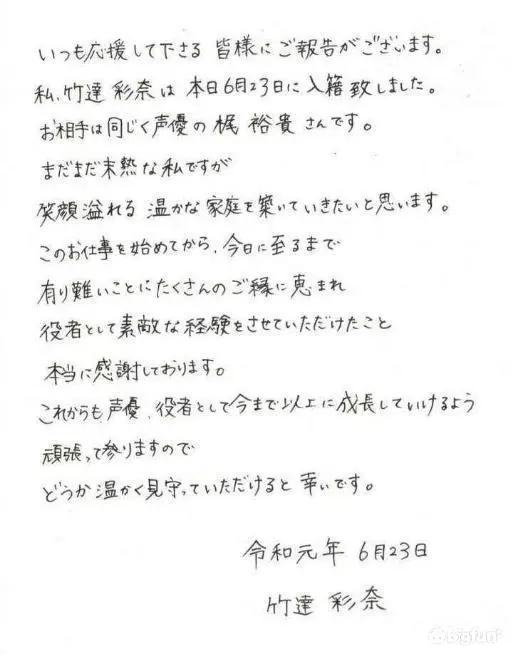 いつも応援して下さる 皆様にご報告がございます。
私、竹達 彩奈は 本日6月23日に 入籍 致しました。
お相手は同じく声優の 梶 裕貴 さんです。
まだまだ未熟な私ですが
笑顔溢れる 温かな 家庭を築いていきたいと思います。
このお仕事を始めてから、今日に至るまで
有り難いことにたくさんのご縁に恵まれ
役者として素敵な経験をさせていただけたこと
本当に感謝しております。
これからも声優、役者として今まで以上に成長していけるよう
頑張って参りますので
どうか温かく見守っていただけると 幸いです。
令和元年 6月23日
竹達 彩奈
bigfun